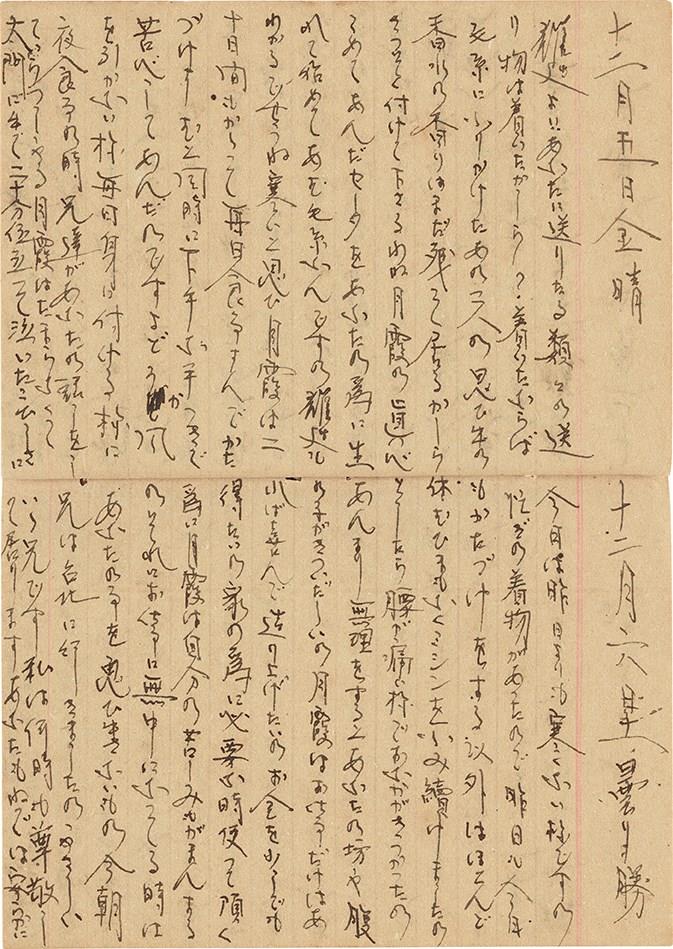 十二月五日金晴
雄サよりあなたに送りたる類々の送
り物は着いたかしら？着いたならば
毛糸にふりかけたあの二人の思ひ出の
香水の香りはまだ残って居るかしら
きつと気付けて下さるわね月霞の直心
こめてあんだセータをあなたの為に生
れて始めてあむ毛糸なんですの
わかるでせうね寒といと思ひ月霞は二
十日間もかゝって毎日食事すんでかた
づけすむと同時に下手な手つきで
苦心してあんだのですよどうか風
を引かない様毎日身に付ける様に
夜食事の時兄達があなたの話をし
ていらつしやる月霞はたまらなくなつて
太門に出て二十分位立って泣いたことに
十二月六日土曇り勝
今日は昨日よりも寒くない様ですの
忙ぎの着物があったので昨日も今日
もかたづけをする以外はほとんど
休むひまもなくミシンをふみ續けましたの
そしたら腰が痛い様でおなかがきつかったの
あんまり無理をするとあなたの坊や腹
の子がきついでしょの月霞はお仕事だけはあ
れば喜んで造り上げたいのお金を少しでも
得たいの家の為に必要な時使って頂く
為に月霞は自分の苦しみもがまんする
のそれにお仕事に無中になってる時は
あなたの事を思ひ出さないもの今朝
兄は台北に行きましたのやさしい
いゝ兄です私は何時も尊敬し
て居りますあなたも